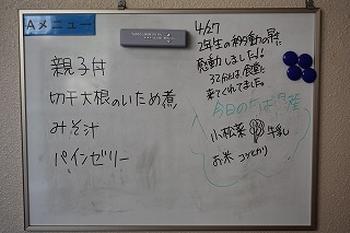 Aメニュー
親子丼
切干大根のいため煮
みそ汁
パインゼリー
4/27
2年生の移動の早さに
感動しました!!
32分には食堂に
来てくれてました。
今日のちば産
小松菜 牛乳
お米 コシヒカリ